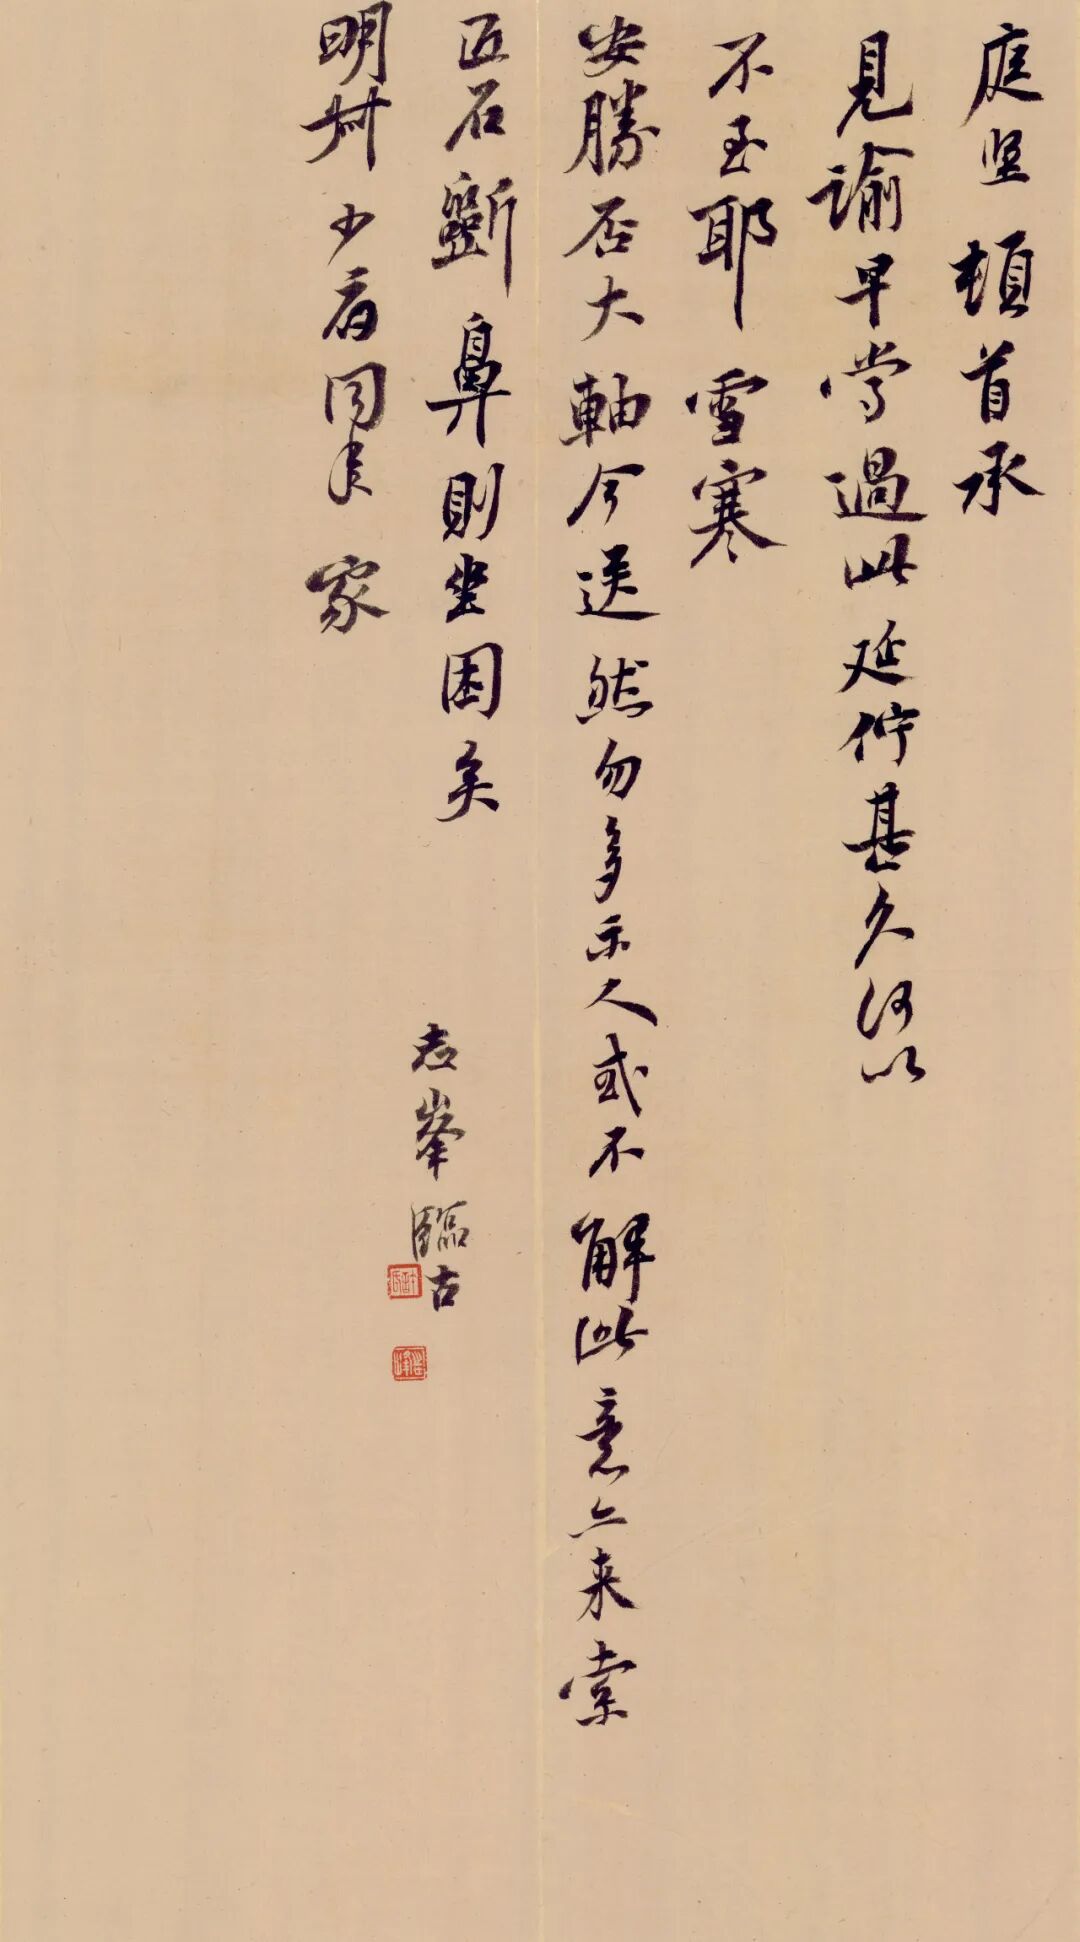 庭坚頓首承
見諭早嘗過此延佇甚久何以
不至耶雪寒
安勝否大軸今送然勿多示人或不解此意亦来索
匠石斵鼻則坐困矣
明叔少府同年家
志峯臨古
志峰